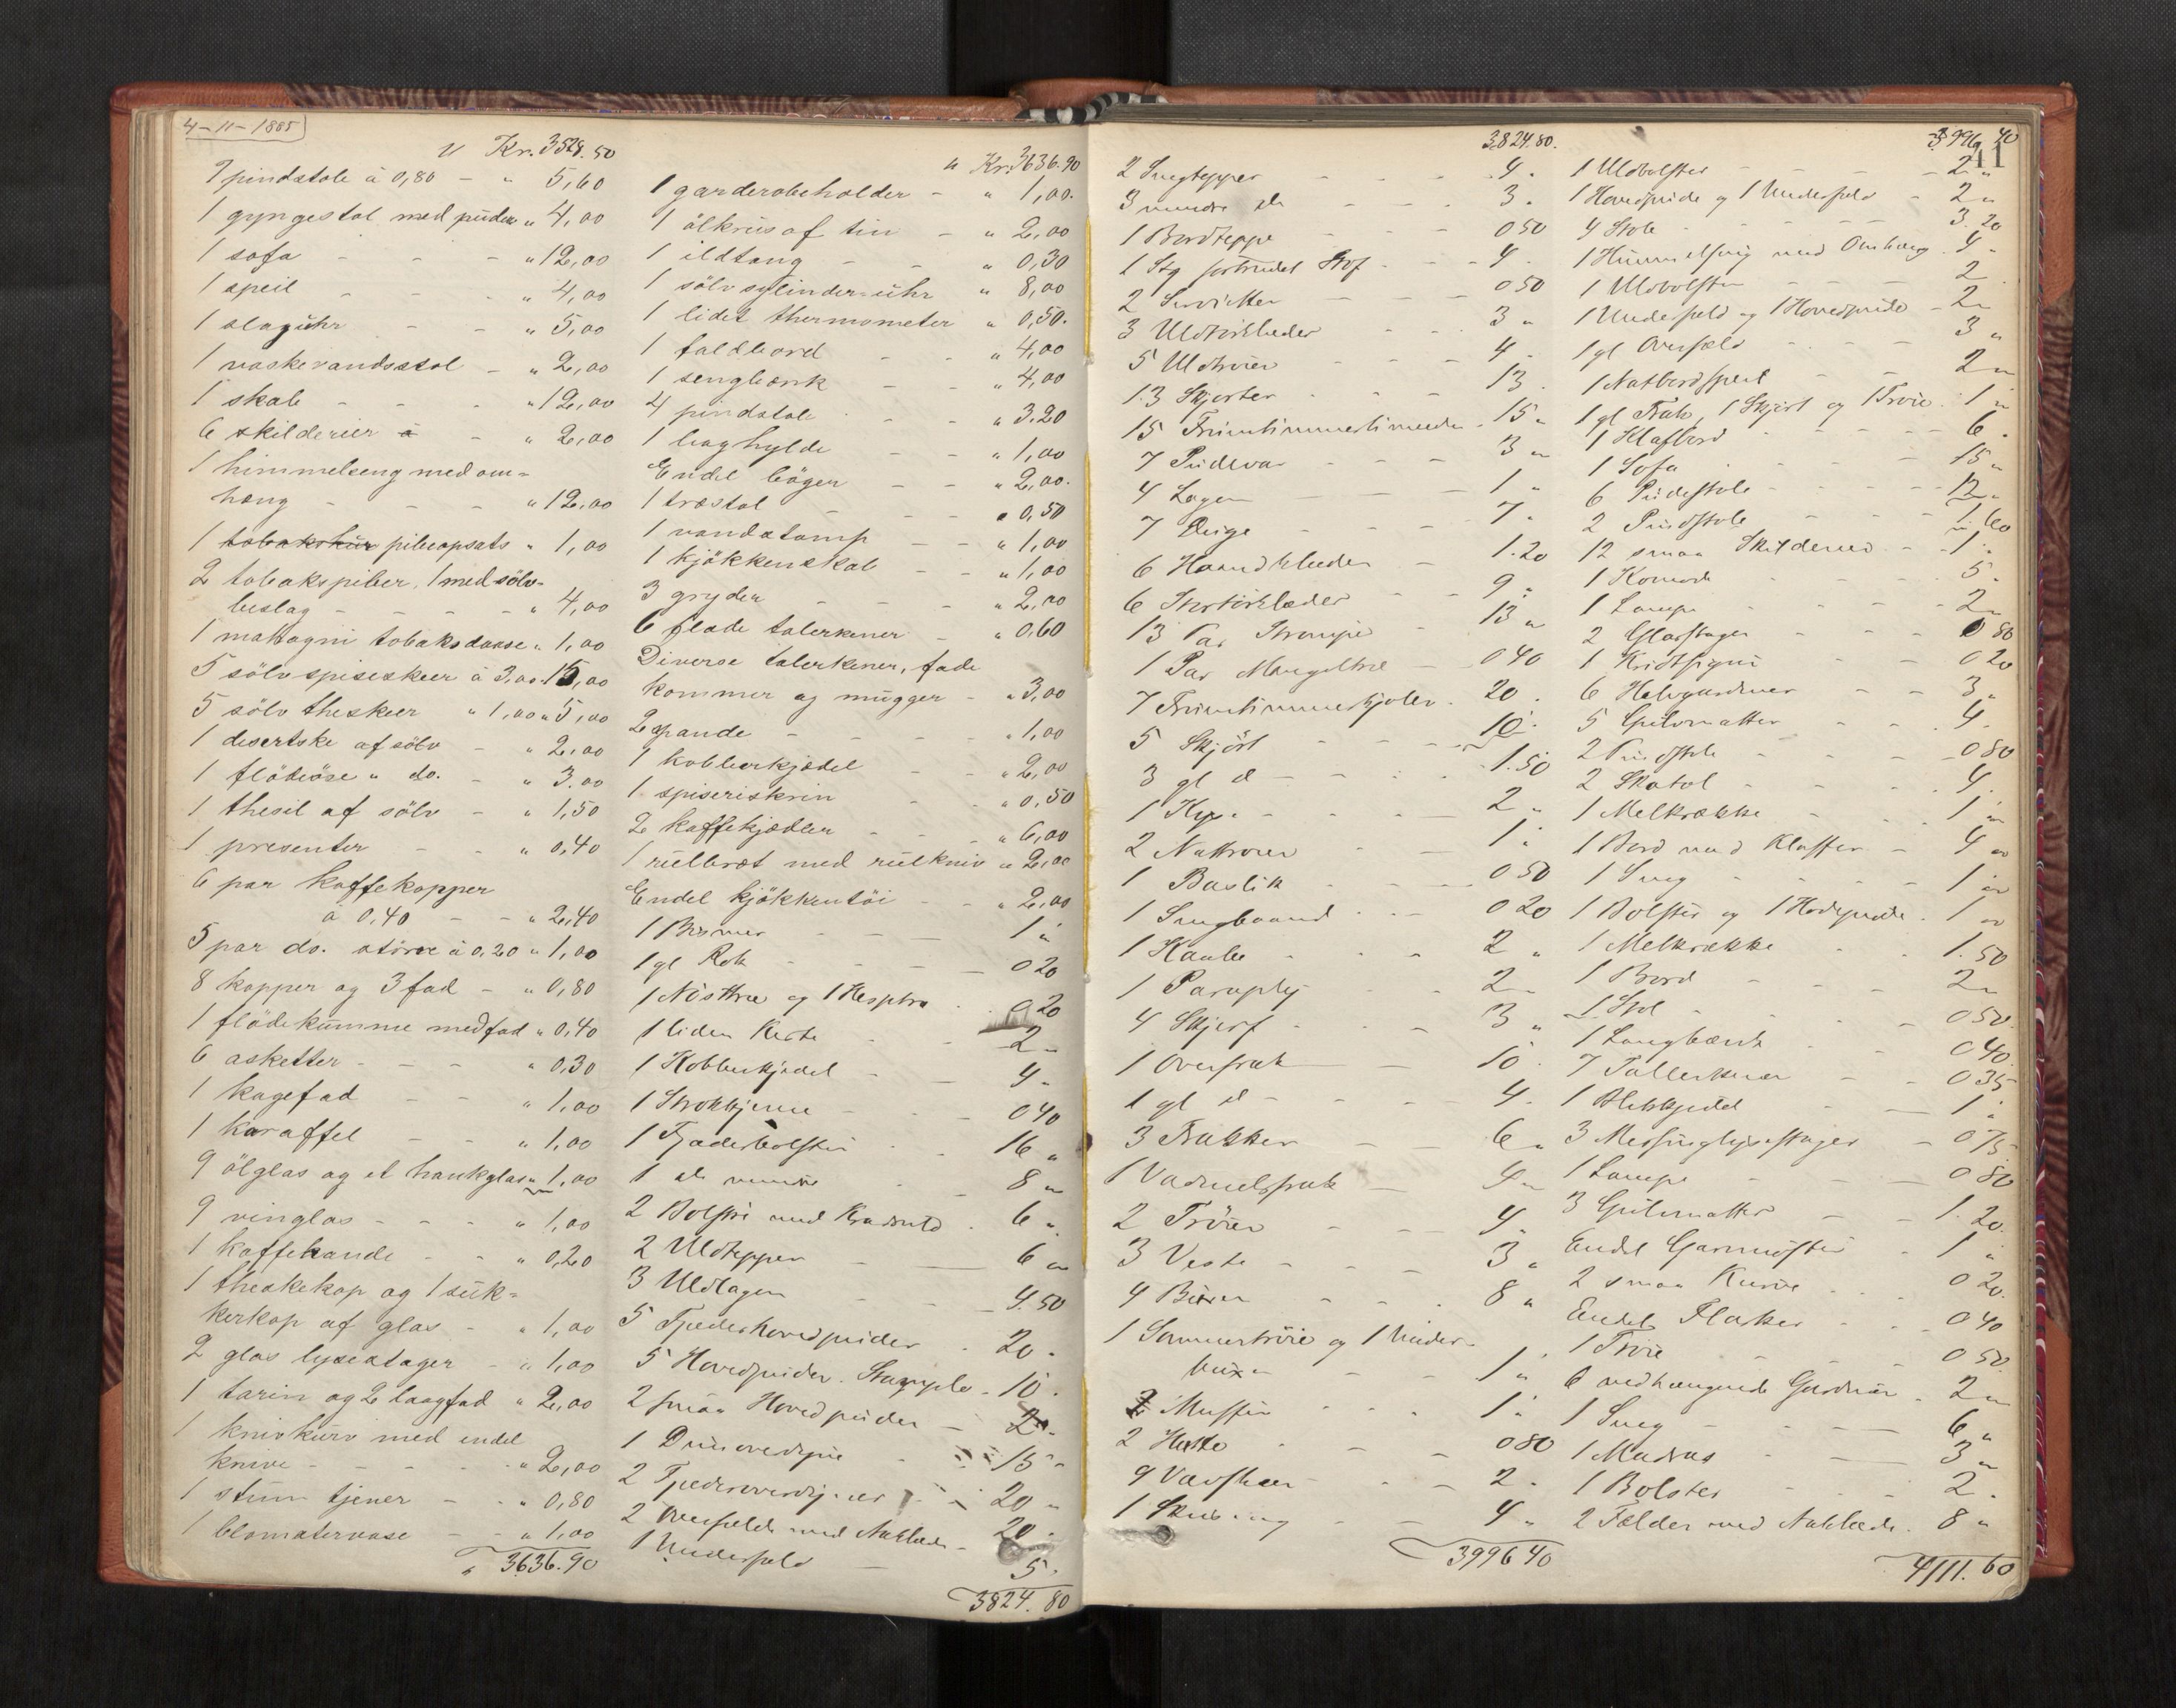 4-11-1885
" Kr. 3528.50
7 pindstole à 0,80 - " 5,60
1 gyngestol med puder " 4,00
1 sofa - - - " 12,00
1 speil - - - " 4,00
1 slaguhr - - " 5,00
1 vaskevandsstol - " 2,00
1 skab - - - " 12,00
6 skilderier - " 2,00
1 himmelseng med om=
hæng - - - " 12,00
1 tobakskur pibeopsats " 1,00
2 tobakspiber, 1 med sölv-
beslag - - - " 4,00
1 mahogni tobaksdaase " 1,00
5 sölv spiseskeer à 3,00 " 15,00
5 sölv theskeer " 1,00 " 5,00
1 desertske af sölv - " 2,00
1 flödeöse " do. - " 3,00
1 thesil af sölv - " 1,50
1 presenter - - " 0,40
6 par kaffekopper
à 0,40 - - " 2,40
5 par do. större à 0,20 " 1,00
8 kopper og 3 fad - " 0,80
1 flödekumme med fad " 0,40
6 asketter - - - " 0,30
1 kagefad - - " 1,00
1 karaffel - - " 1,00
9 ölglas og et hankglas " 1,00
9 vinglas - - - " 1,00
1 kaffekande - - " 0,20
1 theskekop og 1 suk=
kerkop af glas - " 1,00
2 glas lysestager - " 1,00
1 tarin og 2 laagfad " 2,00
1 knivkurv med endel
knive - - - - " 2,00
1 stum tjener - - " 0,80
1 blomstervase - - " 1,00
" 3636.90
" Kr. 3636.90
1 garderobeholder - " 1,00.
1 ölkrus af tin - " 2,00
1 ildtang - - " 0,30
1 sölv sylinder-uhr " 8,00
1 lidet thermometer " 0,50.
1 faldbord - - " 4,00
1 sengbænk - - " 4,00
4 pindstole - - " 3.20
1 boghylde - - " 1,00
Endel böger - - " 2,00.
1 træstol - - - " 0,50
1 vandstamp - - " 1,00
1 kjökkenskab - - " 1,00
3 gryder - - - " 2,00
6 flade talerkener - " 0,60
Diverse talerkener, fade
kommer og mugger - " 3,00
2 pande - - - " 1,00
1 kobberkjedel - - " 2,00
1 spiseriskrin - " 0,50
2 kaffekjedler - - " 6,00
1 rulbræt med rulkniv " 2,00
Endel kjökkentöi - - " 2,00
1 Bismer - - - 1 "
1 gl Rok - - - 0 20
1 Nöstræ og 1 Hesptræ - 0 20
1 liden Kiste - - 2 "
1 Kobberkjedel - - 4 "
1 Strokkjerne - - 0 40
1 Fjæderbolster - - 16 "
1 do mindre - - 8 "
2 Bolstre med - 6 "
2 Uldtepper - - 6 "
3 Uldlagen - - 4.50
5 Fjederhovedpuder - 20 "
5 Hovedpuder. - 10 "
2 smaa Hovedpuder - 2 "
1 - - 15 "
2 - 20 "
2 Overfelde med - 20 "
1 Underfeld - 5 "
3824.80
3,824.80.
2 Sengtepper - - - 4 "
3 mindre do - - - 3 "
1 Bordteppe - - - 0 50
1 Stof - - 4 "
2 Servietter - - - 0 50
3 Uldtörklæder - - 3 "
5 Uldtröier - - - 4 "
13 Skjorter - - - 13 "
15 Fruentimmerlinneder - 15 "
7 Pudevar - - - 3 "
4 Lagen - - - 1 "
7 Duge - - - 7 "
6 Haandklæder - - 1.20
6 - - 9 "
13 Par Strømper - - 13 "
1 Par Mangeltræ - 0 40
7 Fruentimmerkjoler - 20 "
5 Skjört - - - 10 "
3 gl d - - - 1.50
1 - - - 2 "
2 Nattröier - - 1 "
1 Baslik - - - 0 50
1 Sengbaand - - 0 20
1 Kaabe - - - 2 "
1 Paraply - - - 2 "
4 Skjerf - - - 3 "
1 Overfrak - - 10 "
1 gl d - - - 4 "
3 Frakker - - 6 "
1 Vadmelsfrak - 4 "
2 Tröier - - - 4 "
3 Veste - - - 3 "
4 Buxer - - - 8 "
1 Sommertröie og 1 Under-
buxe - - - 1 "
2 Muffer - - - 1 "
2 Hatte - - - 0 80
9 Vævskeer - - 2 "
1 - - 4 "
3996 40
3,996 40
41
1 Uldbolster - - - 2 "
1 Hovedpude og 1 Underfeld - 2 "
4 Stole - - - 3.20
1 Himmelseng med Omhæng - 4 "
1 Uldbolster - - - 2 "
1 Underfeld og 1 Hovedpude - 2 "
1 gl Overfeld - - - 3 "
1 Natbordspeil - - 2 "
1 gl Frak, 1 Skjört og 1 Tröie - 1 "
1 Klafbord - - - 6 "
1 Sofa - - - 15 "
6 Pudestole - - - 12 "
2 Pindstole - - 1.60
12 smaa Skilderier - - 1 "
1 Komode - - 5 "
1 Lampe - - - 2 "
2 Glasstager - - - 0 80
1 - - 0 20
6 Halvgardiner - - 3 "
5 Gulvmatter - - 4 "
2 Pindstole - - 0 80
2 Skatol - - 4 "
1 Melkrakke - - 1 "
1 Bord med Klaffer - 4 "
1 Seng - - - 1 "
1 Bolster og 1 Hodepude - 1 "
1 Melkrakke - - 1.50
1 Bord - - 2 "
1 Stol - - - 0 50
1 Langbænk - - 0 40
7 Tallerkener - - 0 35
1 Blikkjedel - - 1 "
3 Messinglysestager - 0 75
1 Lampe - - - 0 80
3 Gulvmatter - - 1.20
Endel - 1 "
2 smaa Kurve - - 0 20
Endel Flasker - - 0 40
1 Tröie - - - 0 50
6 nedhængende Gardiner - 2 "
1 Seng - - - 6 "
1 Madras - - 3 "
1 Bolster - - - 2 "
2 Felder med - 8 "
4111.60